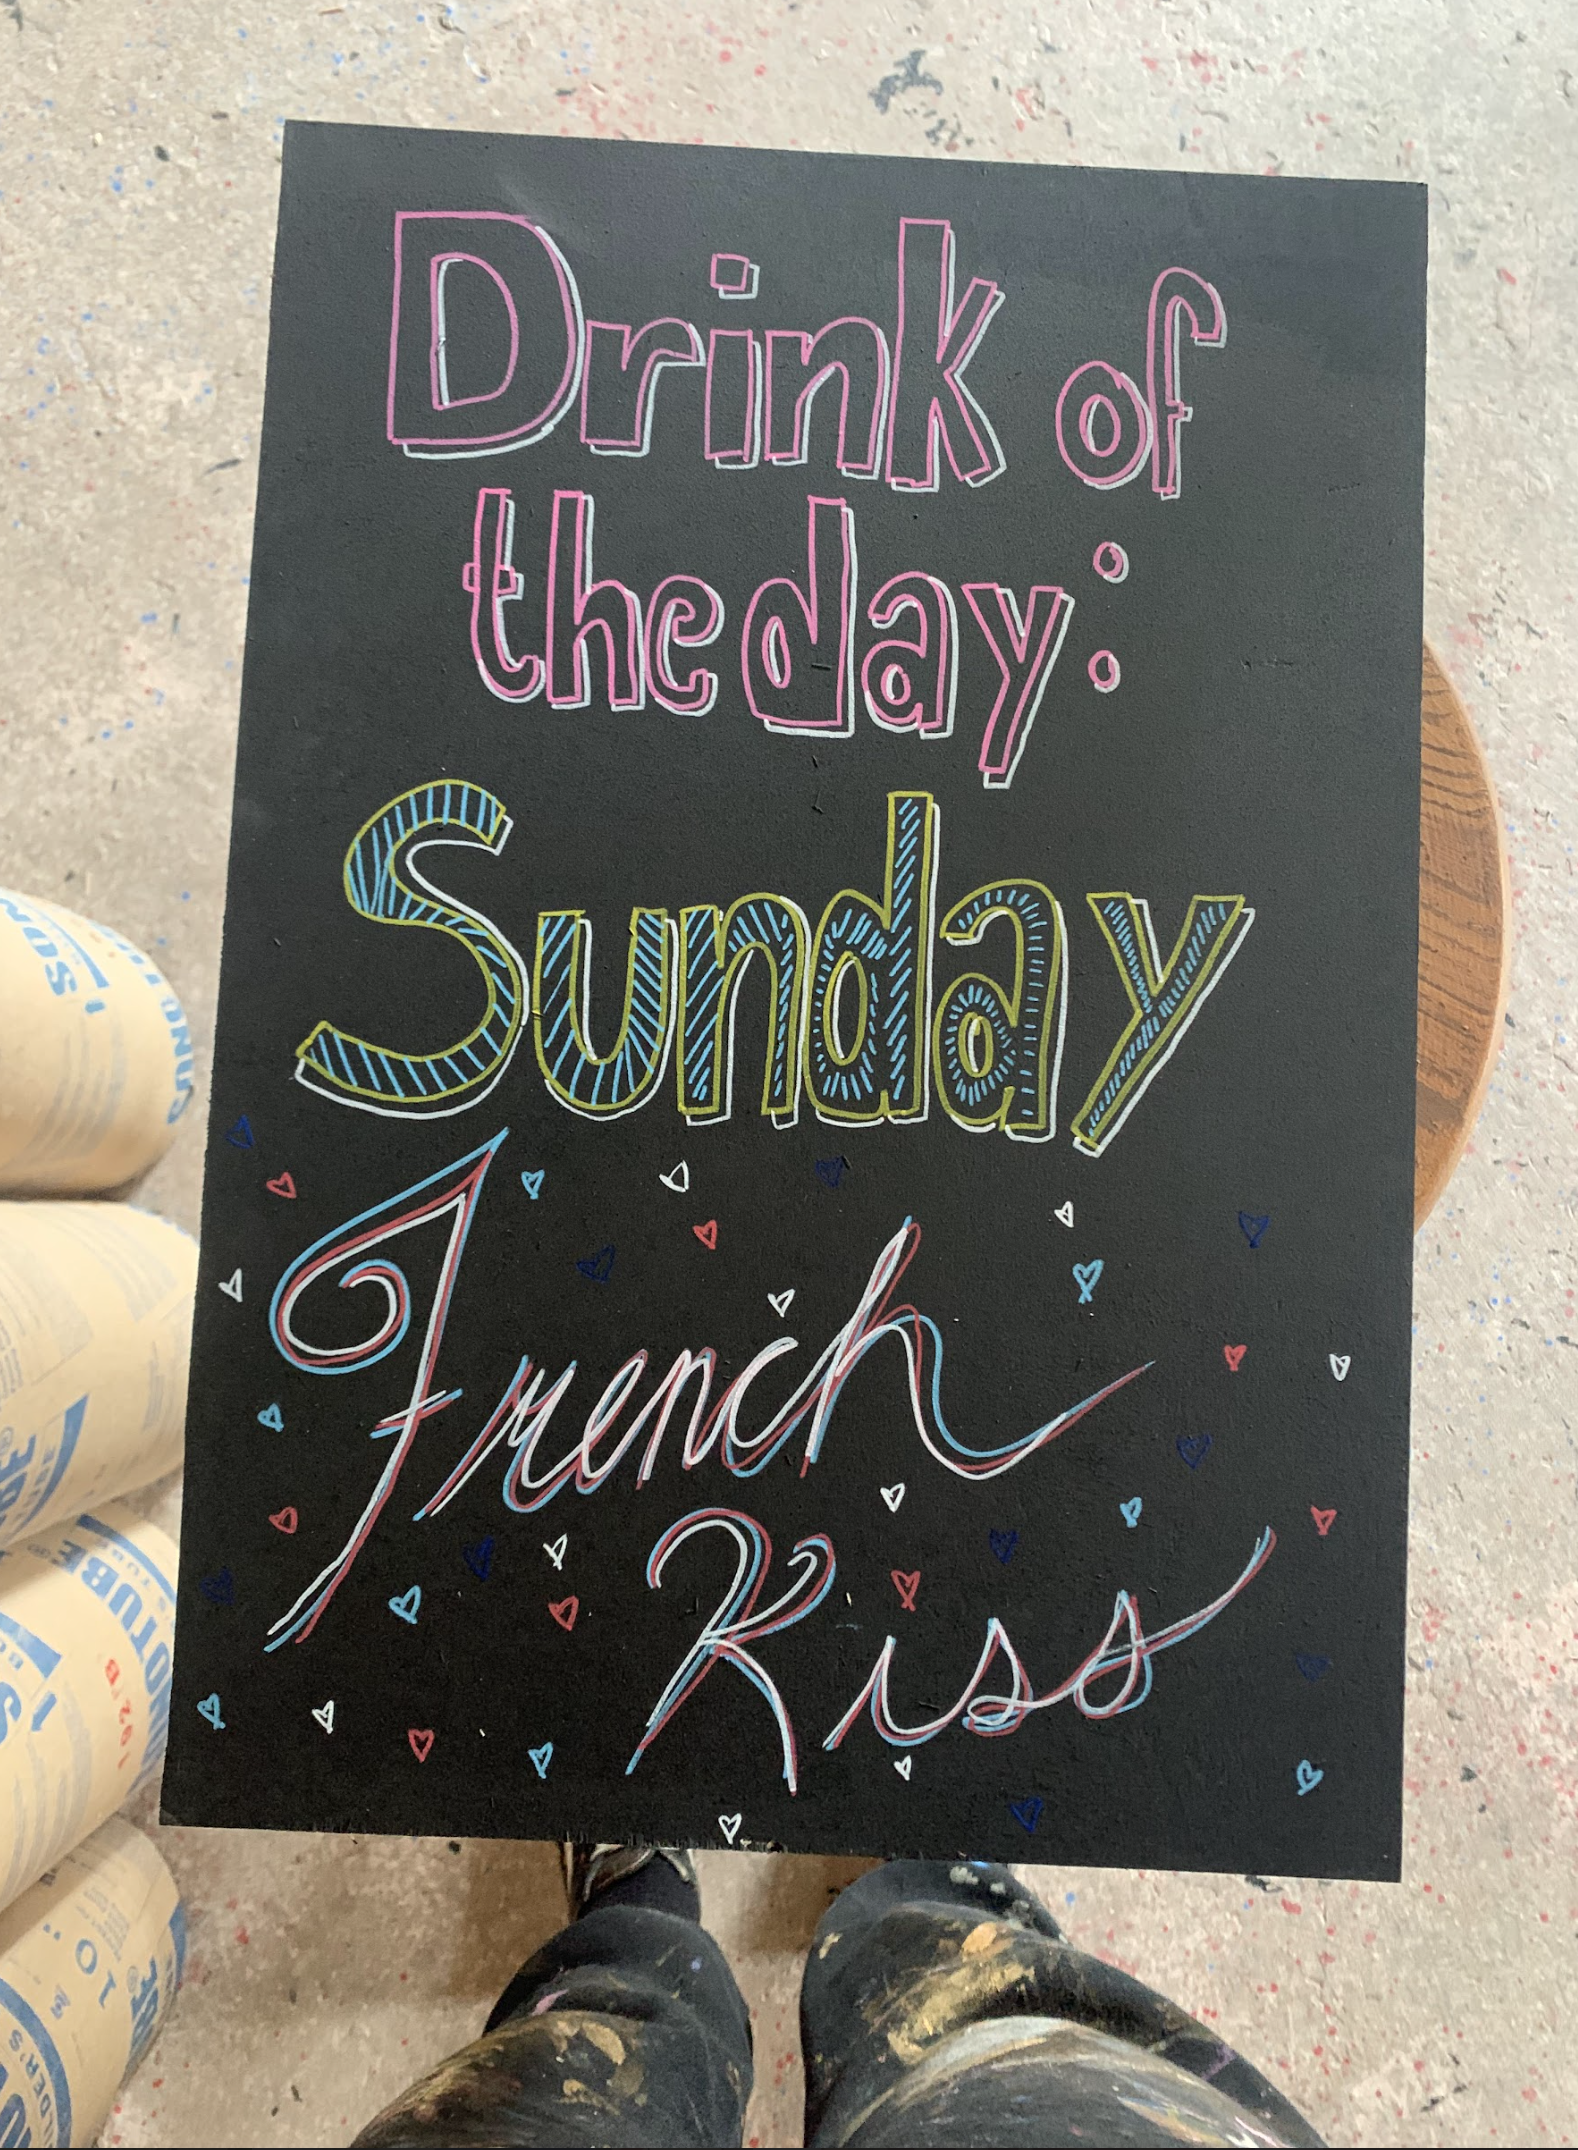 Drink of
the day:
Sunday
French
Kiss